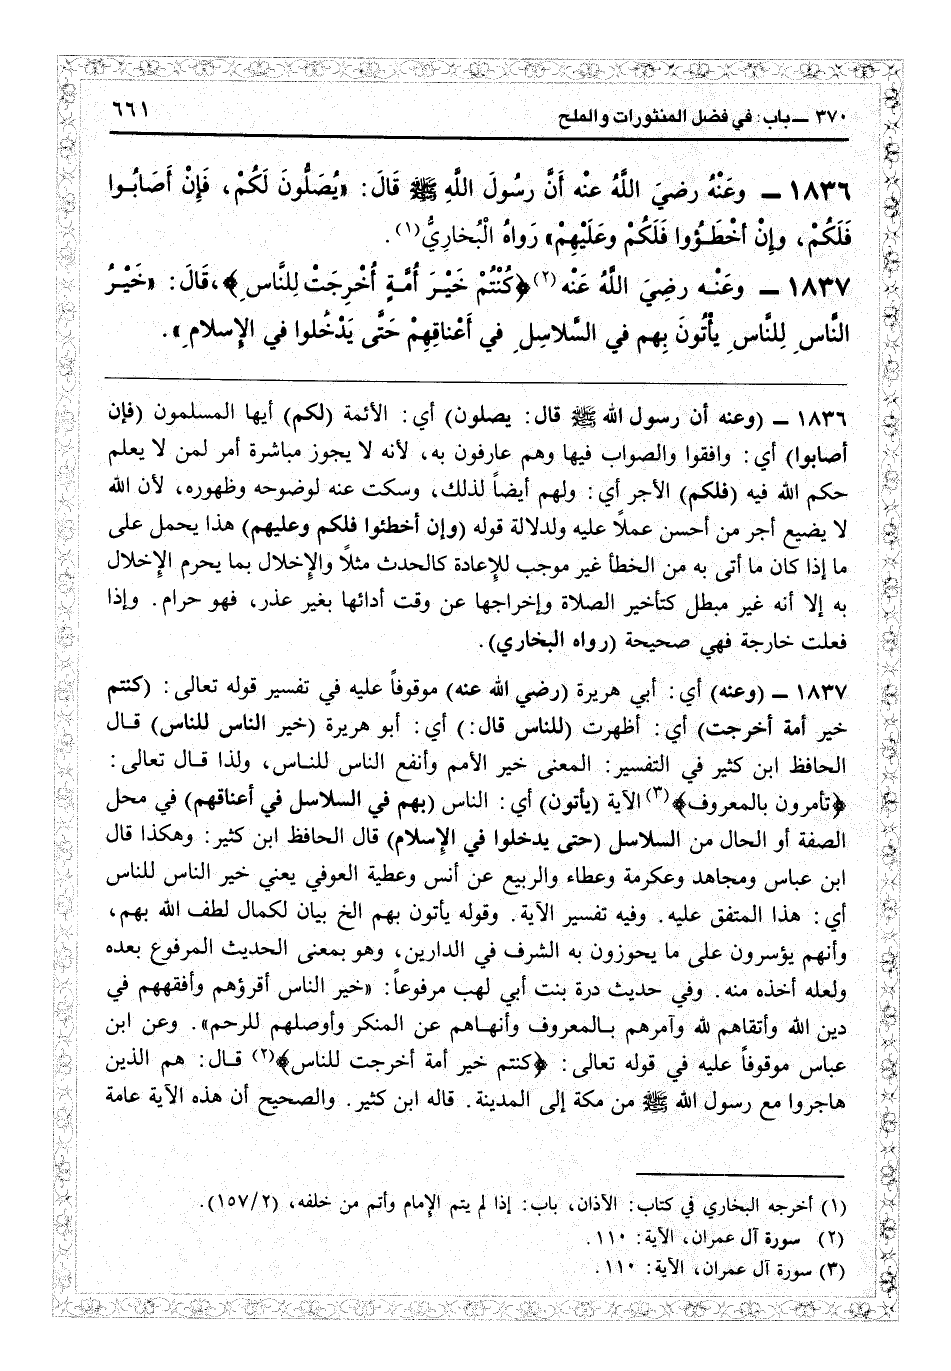 ٣٧٠ ــ باب: في فضل المنثورات والملح
٦٦١
١٨٣٦ ــ وعَنْهُ رضيَ اللَّهُ عنه أَنَّ رسُولَ اللَّهِ ﷺ قَالَ: «يُصَلُّونَ لَكُمْ، فَإِنْ أَصَابُوا
فَلَكُمْ، وإِنْ أَخْطَـؤُوا فَلَكُمْ وعَلَيْهِمْ» رَواهُ الْبُخارِيُّ(١).
١٨٣٧ ــ وعَنْـه رضِيَ اللَّهُ عَنْه(٢)﴿كُنْتُمْ خَيْـرَ أُمَّـةٍ أُخْرِجَتْ لِلنَّاسِ﴾،قَالَ: «خَيْـرُ
النَّاسِ لِلنَّاسِ يأْتُونَ بِهم في السَّلاسِلِ في أَعْناقِهِمْ حَتَّى يَدْخُلوا في الإِسلامِ».
١٨٣٦ ــ (وعنه أن رسول الله ﷺ قال: يصلون) أي: الأئمة (لكم) أيها المسلمون (فإن
أصابوا) أي: وافقوا والصواب فيها وهم عارفون به، لأنه لا يجوز مباشرة أمر لمن لا يعلم
حكم الله فيه (فلكم) الأجر أي: ولهم أيضاً لذلك، وسكت عنه لوضوحه وظهوره، لأن الله
لا يضيع أجر من أحسن عملاً عليه ولدلالة قوله (وإن أخطئوا فلكم وعليهم) هذا يحمل على
ما إذا كان ما أتى به من الخطأ غير موجب للإعادة كالحدث مثلاً والإخلال بما يحرم الإخلال
به إلا أنه غير مبطل كتأخير الصلاة وإخراجها عن وقت أدائها بغير عذر، فهو حرام. وإذا
فعلت خارجة فهي صحيحة (رواه البخاري).
١٨٣٧ ــ (وعنه) أي: أبي هريرة (رضي الله عنه) موقوفاً عليه في تفسير قوله تعالى: (كنتم
خير أمة أخرجت) أي: أظهرت (للناس قال:) أي: أبو هريرة (خير الناس للناس) قـال
الحافظ ابن كثير في التفسير: المعنى خير الأمم وأنفع الناس للنـاس، ولذا قـال تعالى:
﴿تأمرون بالمعروف﴾(٣) الآية (يأتون) أي: الناس (بهم في السلاسل في أعناقهم) في محل
الصفة أو الحال من السلاسل (حتى يدخلوا في الإسلام) قال الحافظ ابن كثير: وهكذا قال
ابن عباس ومجاهد وعكرمة وعطاء والربيع عن أنس وعطية العوفي يعني خير الناس للناس
أي: هذا المتفق عليه. وفيه تفسير الآية. وقوله يأتون بهم الخ بيان لكمال لطف الله بهم،
وأنهم يؤسرون على ما يحوزون به الشرف في الدارين، وهو بمعنى الحديث المرفوع بعده
ولعله أخذه منه. وفي حديث درة بنت أبي لهب مرفوعاً: «خير الناس أقرؤهم وأفقههم في
دين الله وأتقاهم لله وآمرهم بـالمعروف وأنهـاهم عن المنكر وأوصلهم للرحم». وعن ابن
عباس موقوفاً عليه في قوله تعالى: ﴿كنتم خير أمة أخرجت للناس﴾(٢) قـال: هم الذين
هاجروا مع رسول الله ﷺ من مكة إلى المدينة. قاله ابن كثير. والصحيح أن هذه الآية عامة
(١) أخرجه البخاري في كتاب: الآذان، باب: إذا لم يتم الإمام وأتم من خلفه، (١٥٧/٢).
(٢) سورة آل عمران، الآية: ١١٠.
(٣) سورة آل عمران، الآية: ١١٠.